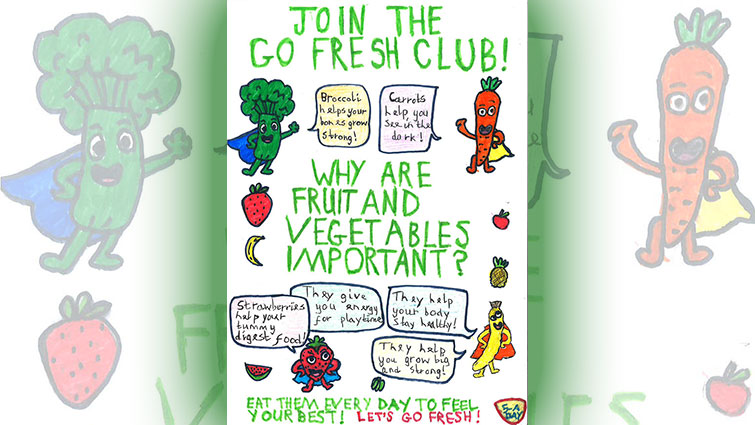 JOIN THE
GO FRESH CLUB!
Broccoli
helps your
bones grow
strong!
Carrots
help you
see in the
dark!
WHY ARE
FRUIT AND
VEGETABLES
IMPORTANT?
Strawberries
help your
tummy
digest food!
They give
you energy
for playtime
They help
your body
stay healthy!
They help
you grow big
and strong!
EAT THEM EVERY DAY TO FEEL
YOUR BEST! LET'S GO FRESH!
5-A
DAY